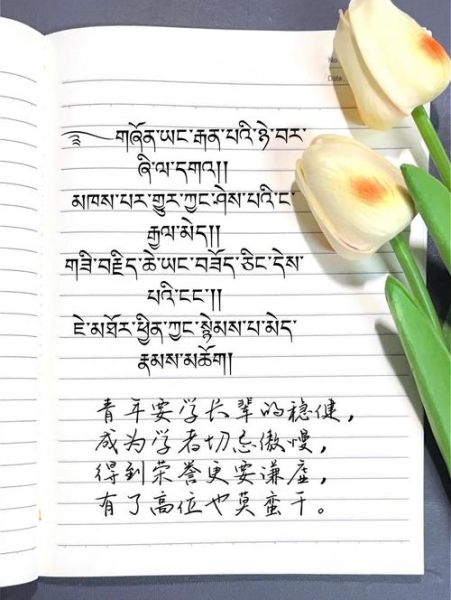 No.
Date
༄ གཞོན་ཡང་རྒན་པའི་ཉེ་བར་
ཞི་ལ་དགའ།།
མཁས་པར་གྱུར་ཀྱང་ཤེས་པའི་ང་
རྒྱལ་མེད།།
གཟི་བརྗིད་ཆེ་ཡང་བཟོད་ཅིང་དེས་
པའི་ངང་།།
ཇེ་མཐོར་ཕྱིན་ཀྱང་སྙེམས་པ་མེད་
རྣམས་མཆོག།
青年要学长辈的稳健，
成为学者切忌傲慢，
得到荣誉更要谦虚，
有了高位也莫蛮干。